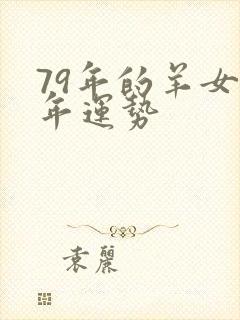 79年的羊女
年運势
袁麗